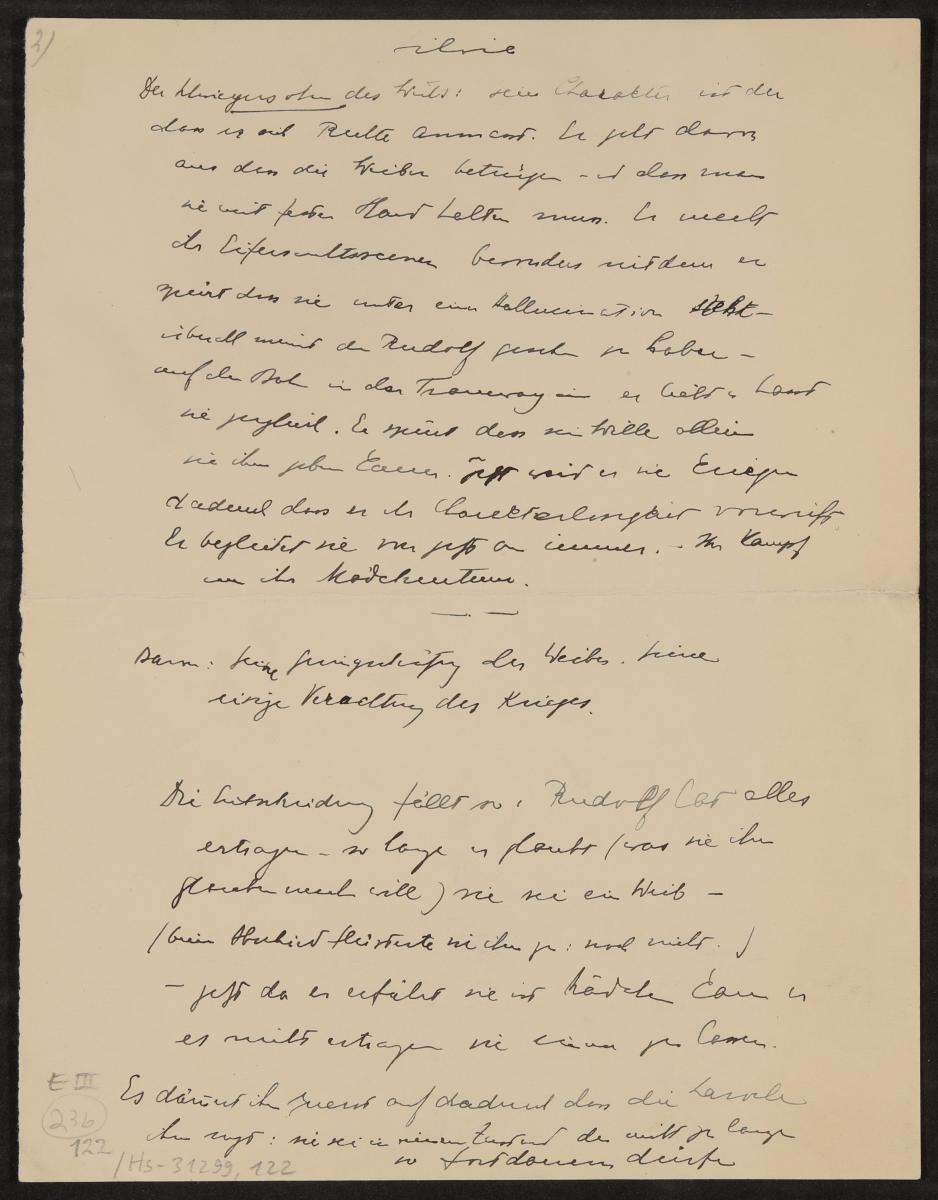 2)
Der Kriegersohn des Weibs: sein Charakter ist der
dass er sich Rechte anmasst. Er geht davon
aus dass die Weiber betrügen - u dass man
sie mit fester Hand halten muss. Er macht
ihr Eifersuchtsscenen besonders seitdem er
spürt dass sie unter einer Hallucination steht -
überall meint den Rudolf gesehn zu haben -
auf der Bahn in der Tramway er hält u hasst
sie zugleich. Er spürt dass sein Wille allein
sie ihm geben kann. Jetzt wird er sie kriegen
dadurch dass er ihr Charakterlosigkeit vorwirft
Er begleitet sie von jetzt an immer. - Ihr Kampf
um ihr Mädchentum.
Darin: seine Geringschätzung des Weibes. Seine
einzige Verachtung des Krieges.
Die Entscheidung fällt so: Rudolf hat alles
ertragen - so lange er glaubt (was sie ihn
glauben machen will) sie sei ein Weib -
(beim Abschied flüsterte sie ihm zu: noch nicht.)
- jetzt da er erfährt sie ist Mädchen kann er
es nicht ertragen sie einem zu lassen.
Es dämmert ihm zuerst auf dadurch dass die
ihm sagt: sie sei in einem Zustand der nicht zu lange
so fortdauern dürfe
E III
236
122
/Hs-31299,122